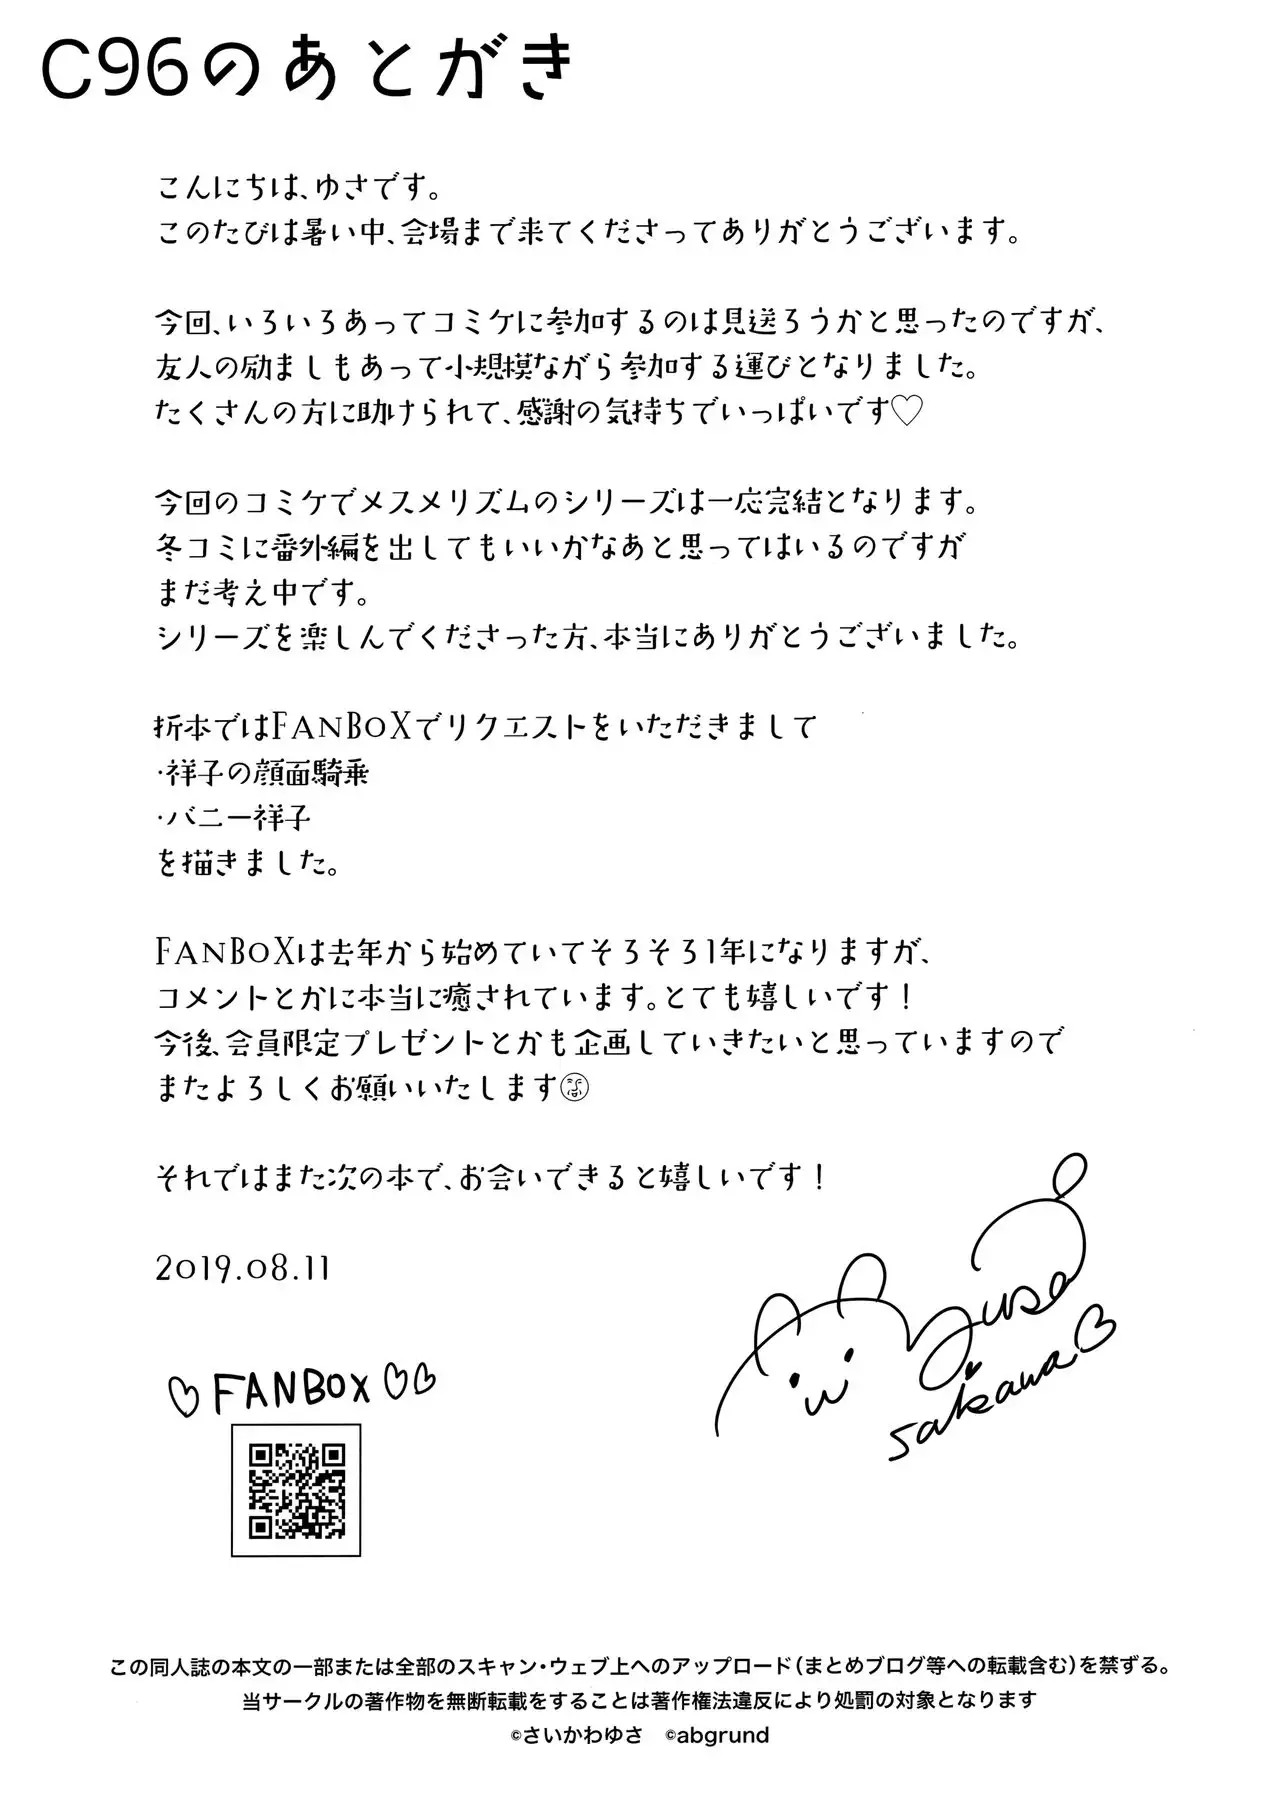 C96のあとがき
こんにちは、ゆさです。
このたびは暑い中、会場まで来てくださってありがとうございます。
今回、いろいろあってコミケに参加するのは見送ろうかと思ったのですが、
友人の励ましもあって小規模ながら参加する運びとなりました。
たくさんの方に助けられて、感謝の気持ちでいっぱいです♡
今回のコミケでメスメリズムのシリーズは一応完結となります。
冬コミに番外編を出してもいいかなあと思ってはいるのですが
まだ考え中です。
シリーズを楽しんでくださった方、本当にありがとうございました。
折本ではFANBOXでリクエストをいただきまして
・祥子の顔面騎乗
・バニー祥子
を描きました。
FANBOXは去年から始めていてそろそろ1年になりますが、
コメントとかに本当に癒されています。とても嬉しいです！
今後、会員限定プレゼントとかも企画していきたいと思っていますので
またよろしくお願いいたします
それではまた次の本で、お会いできると嬉しいです！
2019.08.11
yusa
saikawa♡
♡FANBOX♡♡
この同人誌の本文の一部または全部のスキャン・ウェブ上へのアップロード（まとめブログ等への転載含む）を禁ずる。
当サークルの著作物を無断転載をすることは著作権法違反により処罰の対象となります
©さいかわゆさ　©abgrund